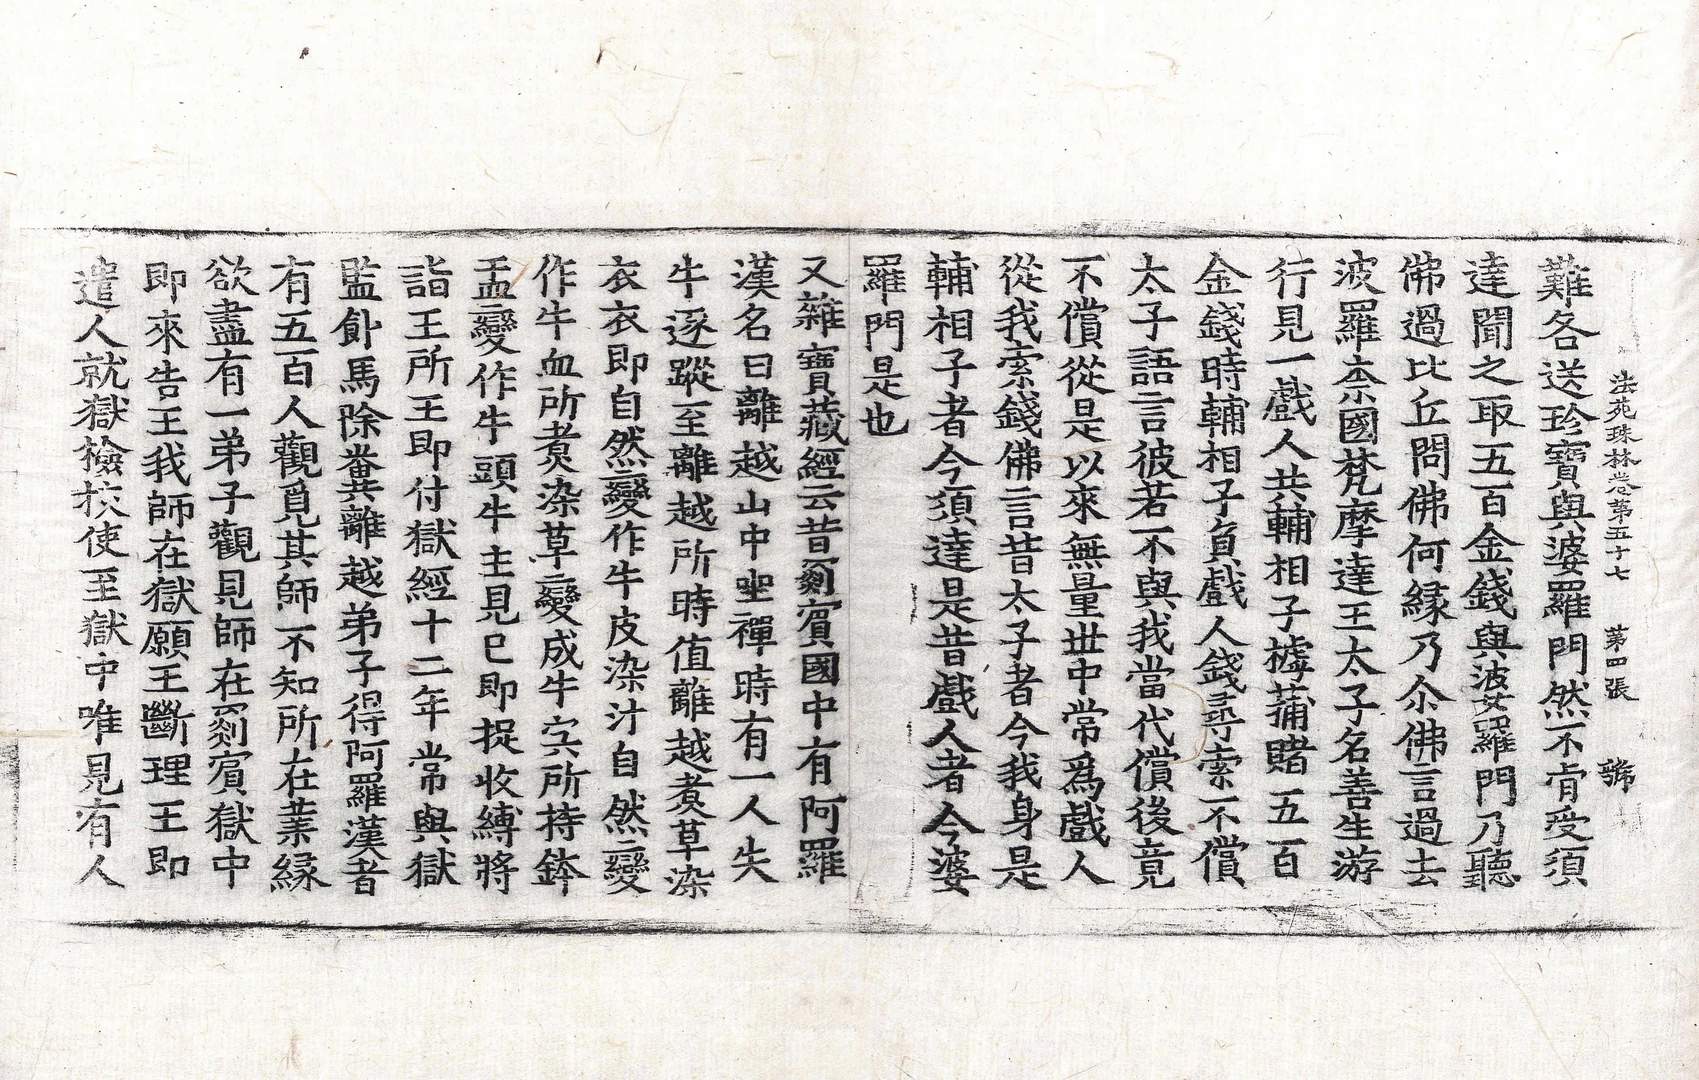 法苑珠林卷第五十七 第四張 號
難各送珍寶與婆羅門然不肯受須
達聞之取五百金錢與波婆羅門乃聽
佛過比丘問佛何緣乃尒佛言過去
波羅柰國梵摩達王太子名善生游
行見一戲人共輔相子摴蒱賭五百
金錢時輔相子負戲人錢尋索不償
太子語言彼若不與我當代償後竟
不償從是以來無量丗中常爲戲人
從我索錢佛言昔太子者今我身是
輔相子者今須達是昔戲人者今婆
羅門是也
又雜寶藏經云昔罽賓國中有阿羅
漢名曰離越山中坐禪時有一人失
牛逐蹤至離越所時值離越煮草染
衣衣即自然變作牛皮染汁自然變
作牛血所煮染草變成牛肉所持鉢
盂變作牛頭牛主見已即捉收縛將
詣王所王即付獄經十二年常與獄
監飤馬除糞離越弟子得阿羅漢者
有五百人觀覓其師不知所在業緣
欲盡有一弟子觀見師在罽賓獄中
即來告王我師在獄願王斷理王即
遣人就獄檢挍使至獄中唯見有人